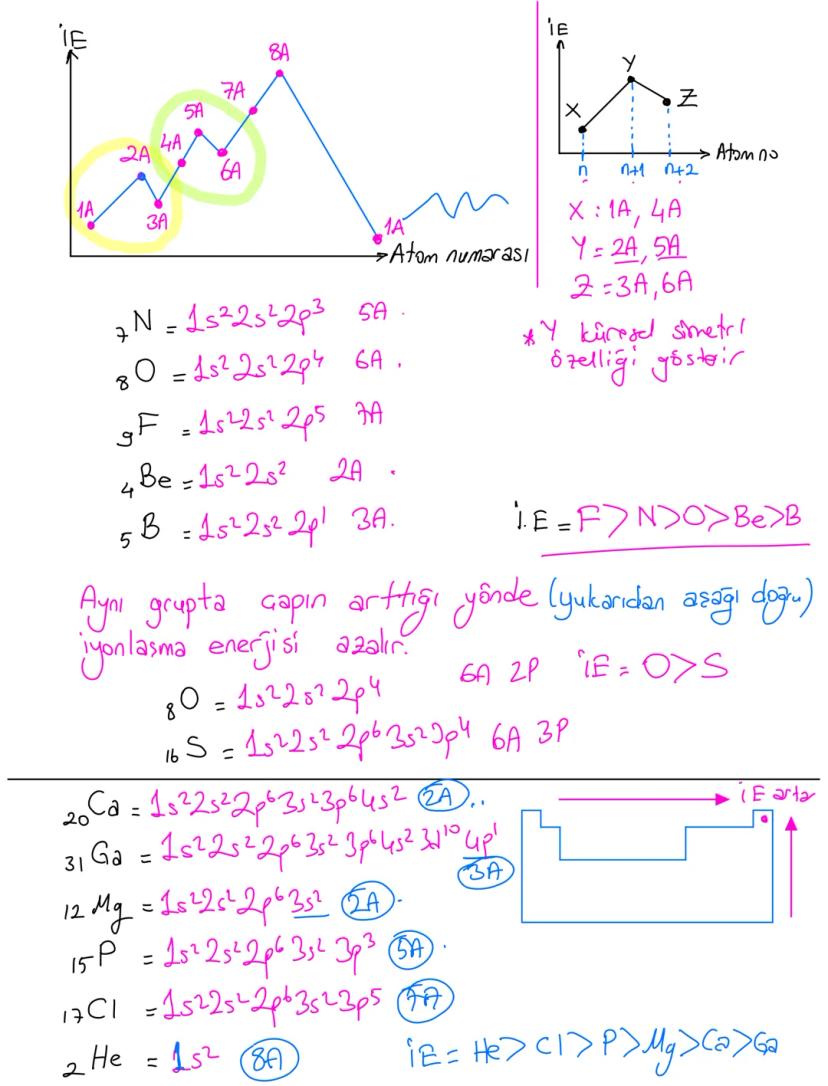 İE
8A
7A
5A
4A
2A
6A
1A
3A
1A
Atom numarası
İE
Y
X
Z
Atom no
n n+1 n+2
X : 1A, 4A
Y = 2A, 5A
Z = 3A, 6A
* Y küresel simetri
özelliği gösterir
₇N = 1s²2s²2p³ 5A .
₈O = 1s²2s²2p⁴ 6A .
₉F = 1s²2s²2p⁵ 7A
₄Be = 1s²2s² 2A .
₅B = 1s²2s²2p¹ 3A.
İ.E = F>N>O>Be>B
Aynı grupta çapın arttığı yönde (yukarıdan aşağı doğru)
iyonlaşma enerjisi azalır.
₈O = 1s²2s²2p⁴ 6A 2P İE = O>S
₁₆S = 1s²2s²2p⁶3s²3p⁴ 6A 3P
₂₀Ca = 1s²2s²2p⁶3s²3p⁶4s² 2A ..
₃₁Ga = 1s²2s²2p⁶3s²3p⁶4s²3d¹⁰4p¹
3A
₁₂Mg = 1s²2s²2p⁶3s² 2A .
₁₅P = 1s²2s²2p⁶3s²3p³ 5A .
₁₇Cl = 1s²2s²2p⁶3s²3p⁵ 7A
₂He = 1s² 8A
İE artar
İE = He>Cl>P>Mg>Ca>Ga